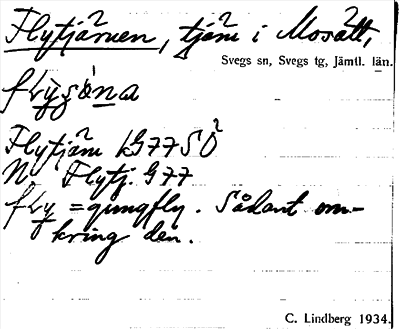 Flytjärnen, tjärn i Mosätt,
Svegs sn, Svegs tg, Jämtl. län.
Flytjärn LG77SÖ
N. Flytj. G77
fly = gungfly. Sådant om-
kring den.
C. Lindberg 1934.